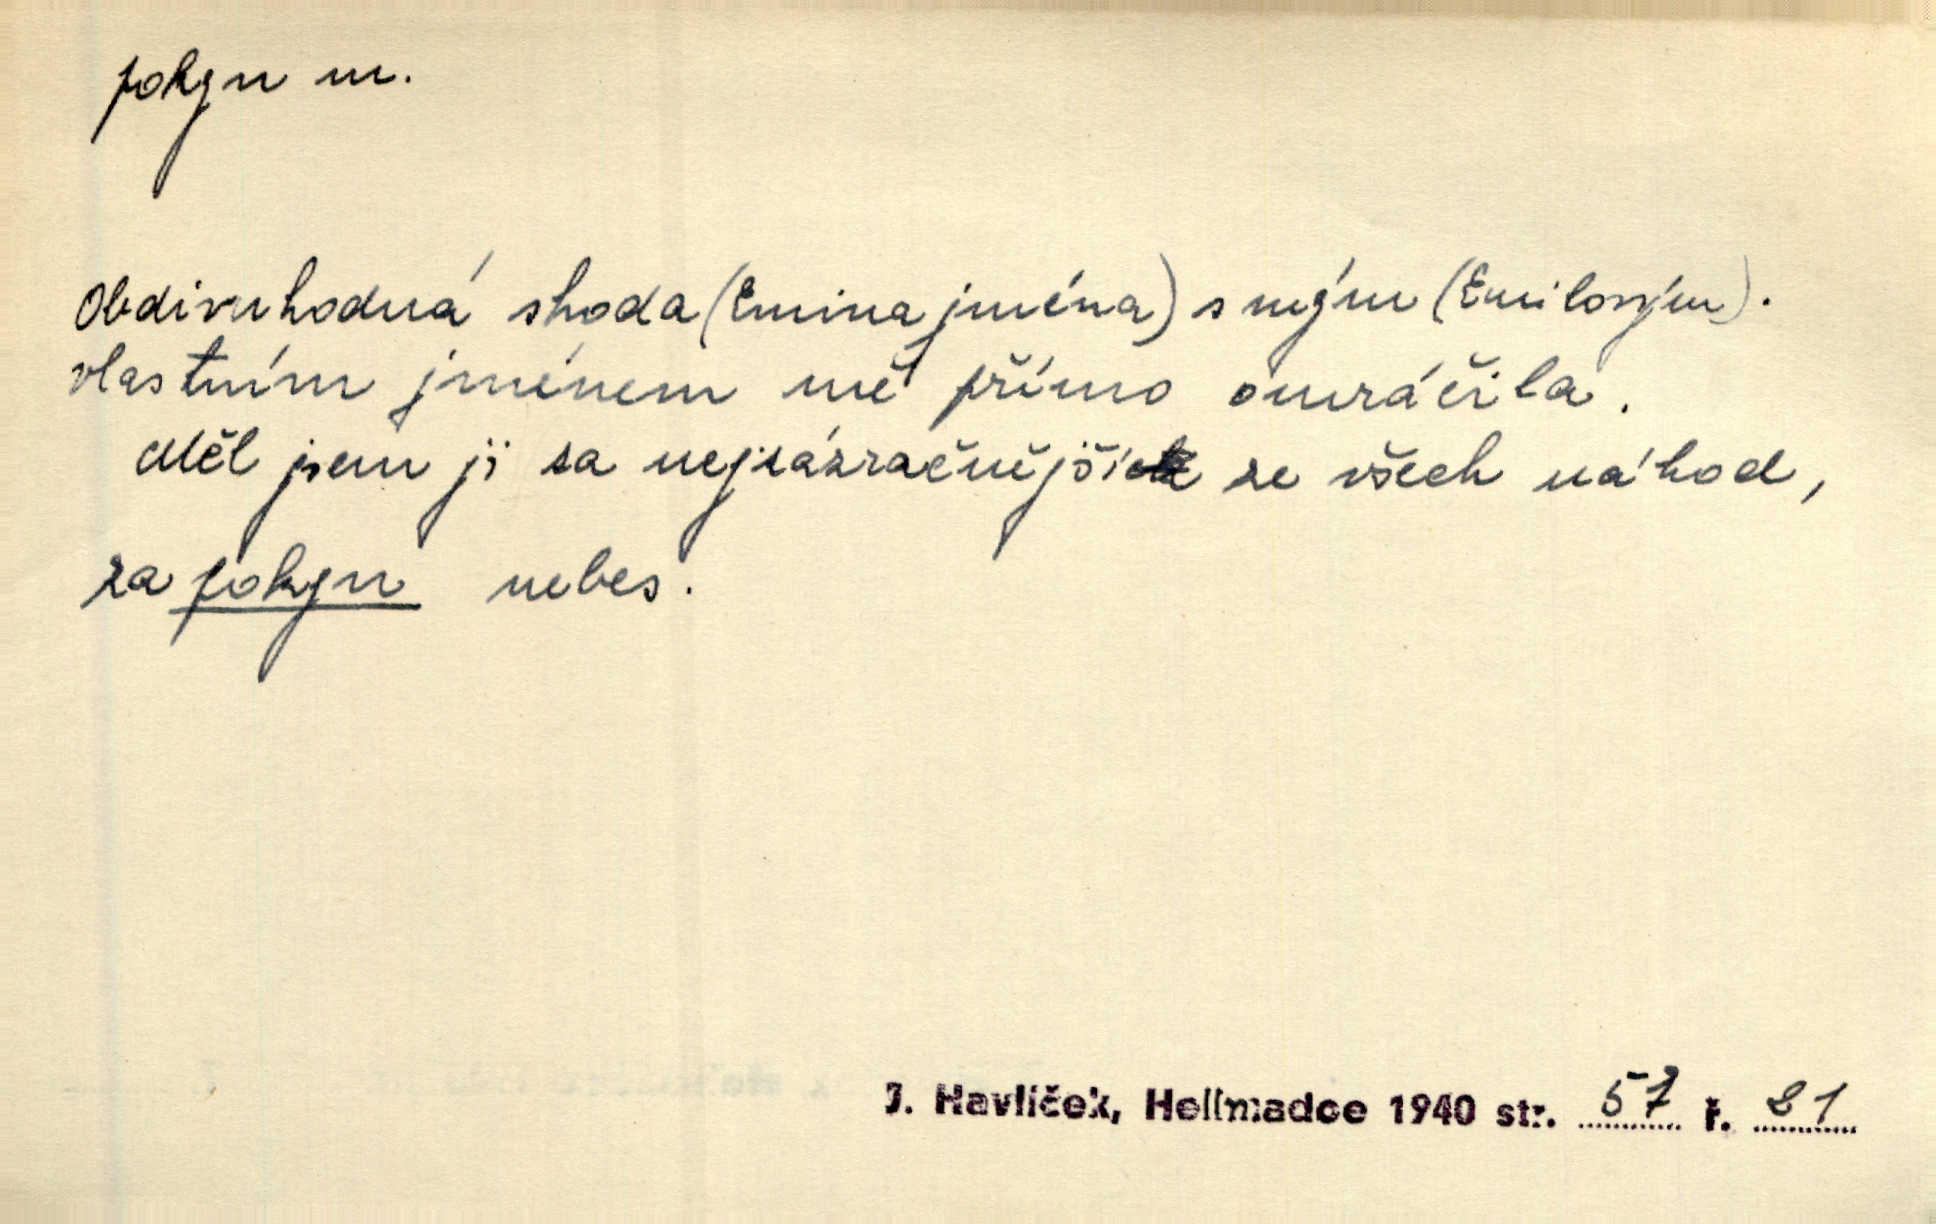 pokyn m.
Obdivuhodná shoda (Emina jména) s mým (Emilovým).
vlastním jménem mě přímo omráčila.
Měl jsem ji za nejzázračnější ze všech náhod,
za pokyn nebes.
J. Havlíček, Helimadoe 1940 str. 57 ř. 21